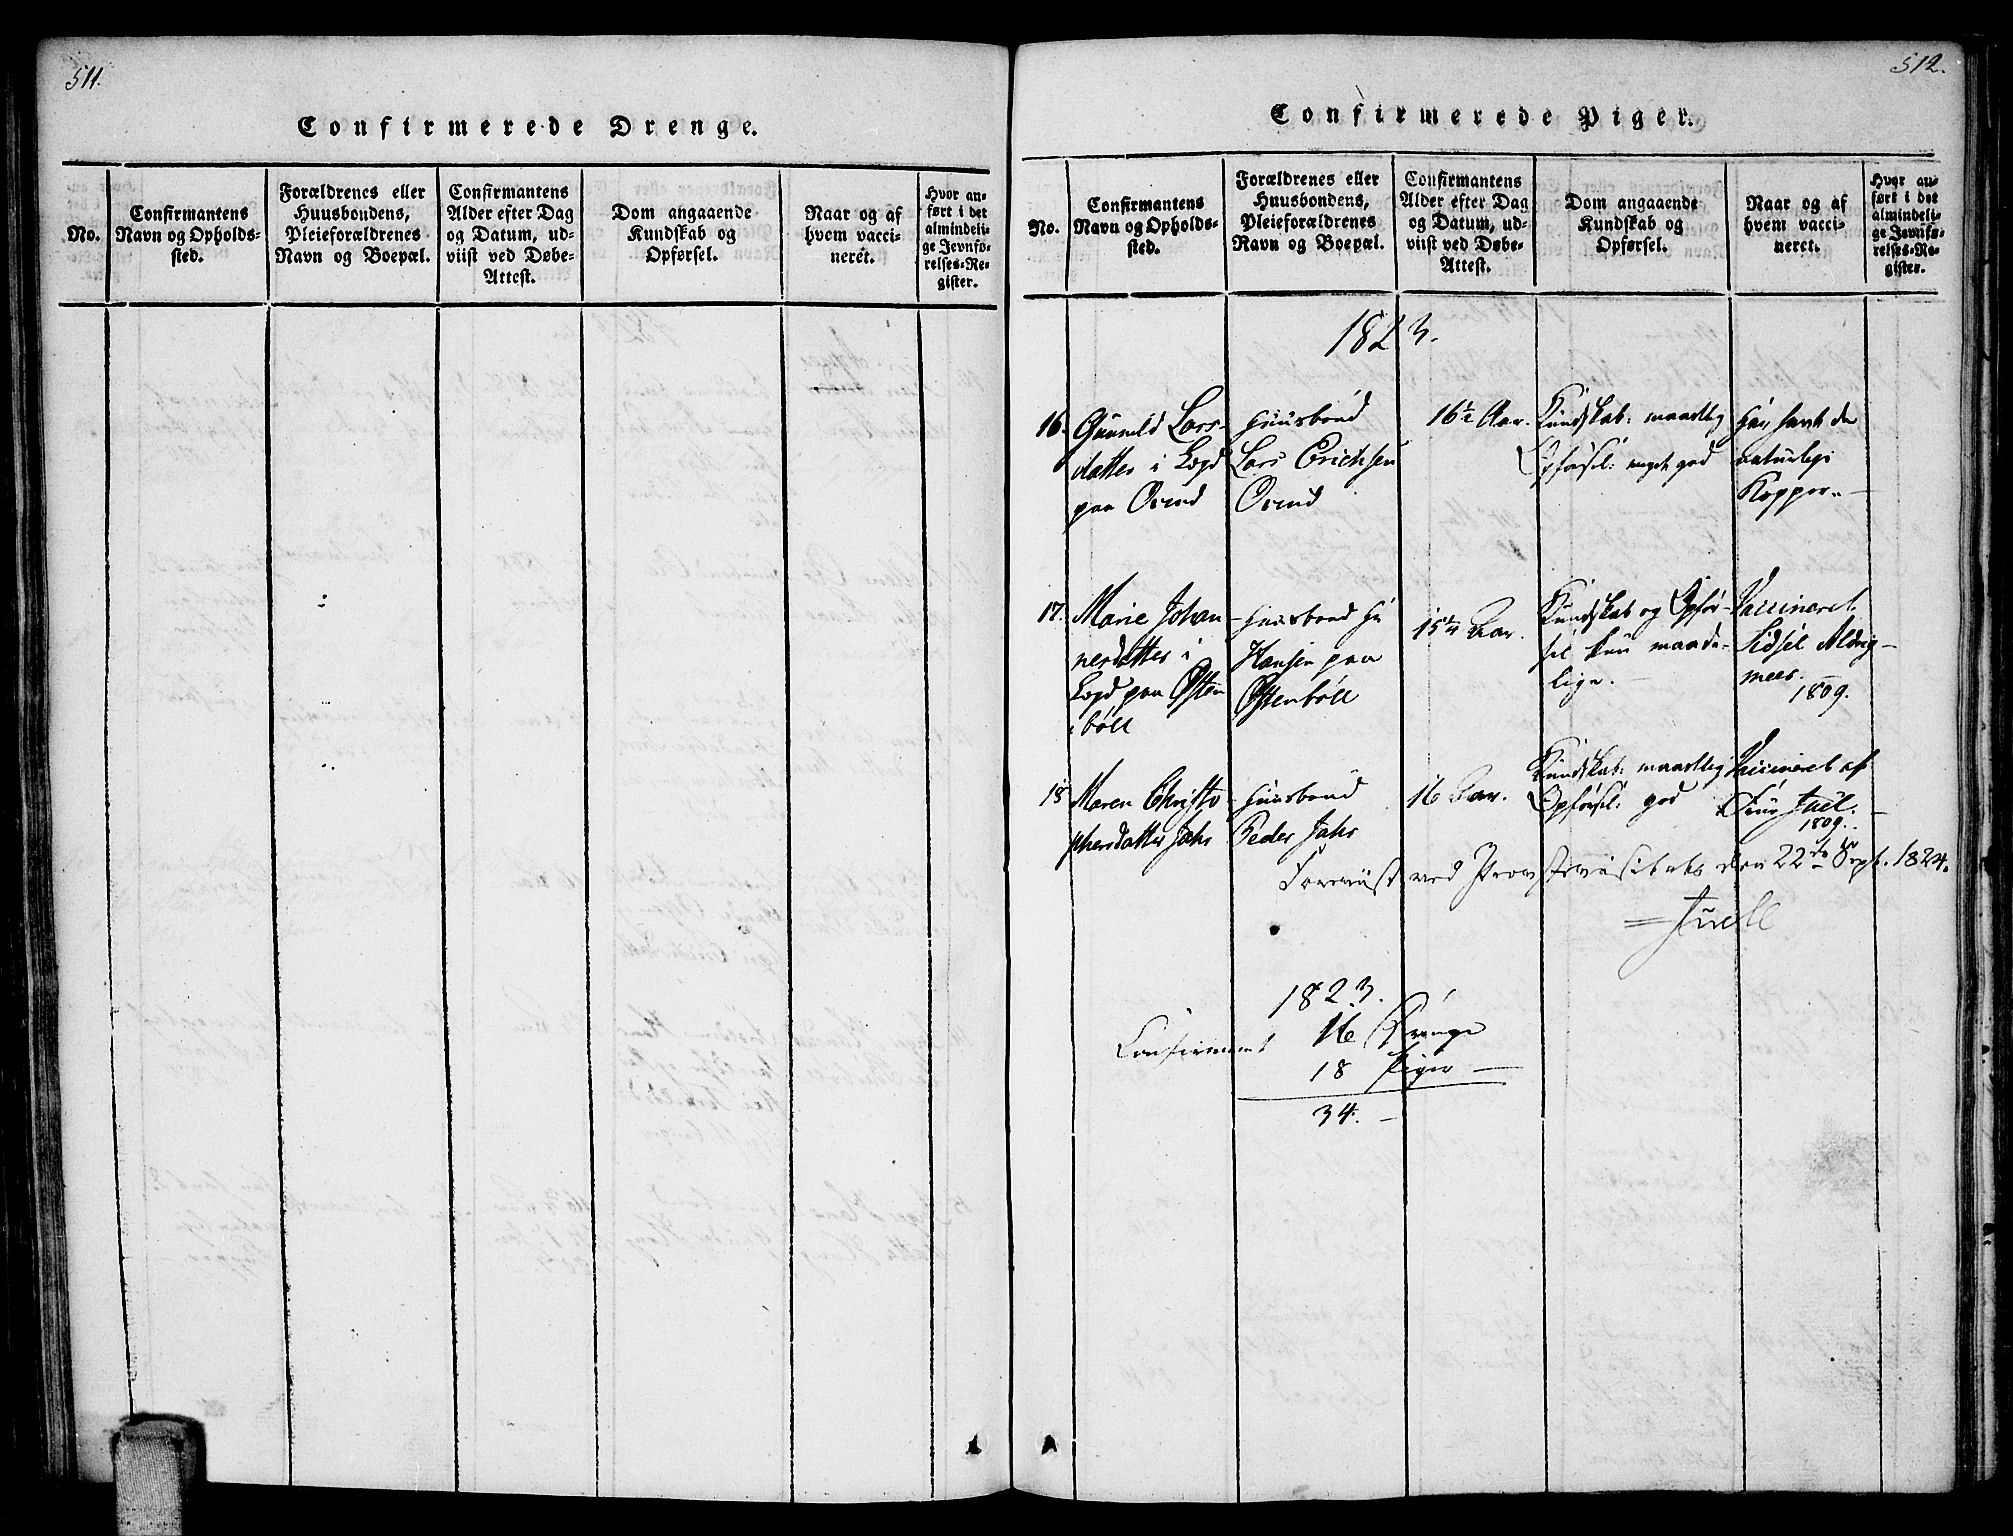 511.
Confirmerede Drenge.
No.
Confirmantens
Navn og Opholds-
sted.
Forældrenes eller
Huusbondens,
Pleieforældrenes
Navn og Boepæl.
Confirmantens
Alder efter Dag
og Datum, ud-
viist ved Døbe-
Attest.
Dom angaaende
Kundskab og
Opførsel.
Naar og af
hvem vacci-
neret.
Hvor an-
ført i det
almindeli-
ge Jevnfø-
relses-Re-
gister.
512.
Confirmerede Piger.
No.
Confirmantens
Navn og Opholds-
sted.
Forældrenes eller
Huusbondens,
Pleieforældrenes
Navn og Boepæl.
Confirmantens
Alder efter Dag
og Datum, ud-
viist ved Døbe-
Attest.
Dom angaaende
Kundskab og
Opførsel.
Naar og af
hvem vacci-
neret.
Hvor an-
ført i det
almindeli-
ge Jevnfø-
relses-Re-
gister.
1823.
16.
Gunnild Lars-
datter i Logd
paa
Huusbond
Lars Erichsen
16½ Aar.
Kundskab: maadelig
Opførsel: meget god
Har havt de
naturlige
Kopper.
17.
Marie Johan-
nesdatter i
Logd paa Østen
bøll
Huusbond
Hansen paa
Østenbøll
15¼ Aar.
Kundskab og Opfør-
sel kun maade-
lige.
Vaccineret
Sidsel Aldrig-
meer.
1809.
18
Maren Christo-
phersdatter Jahr
Huusbond
Peder Jahr
16 Aar.
Kundskab: maadelig
Opførsel: god
Vaccineret af
Juel.
1809.
Foreviist ved Provstevisitats den 22de Sept. 1824.
Juell
1823.
Confirmeret 16 Drenge
18 Piger
34.